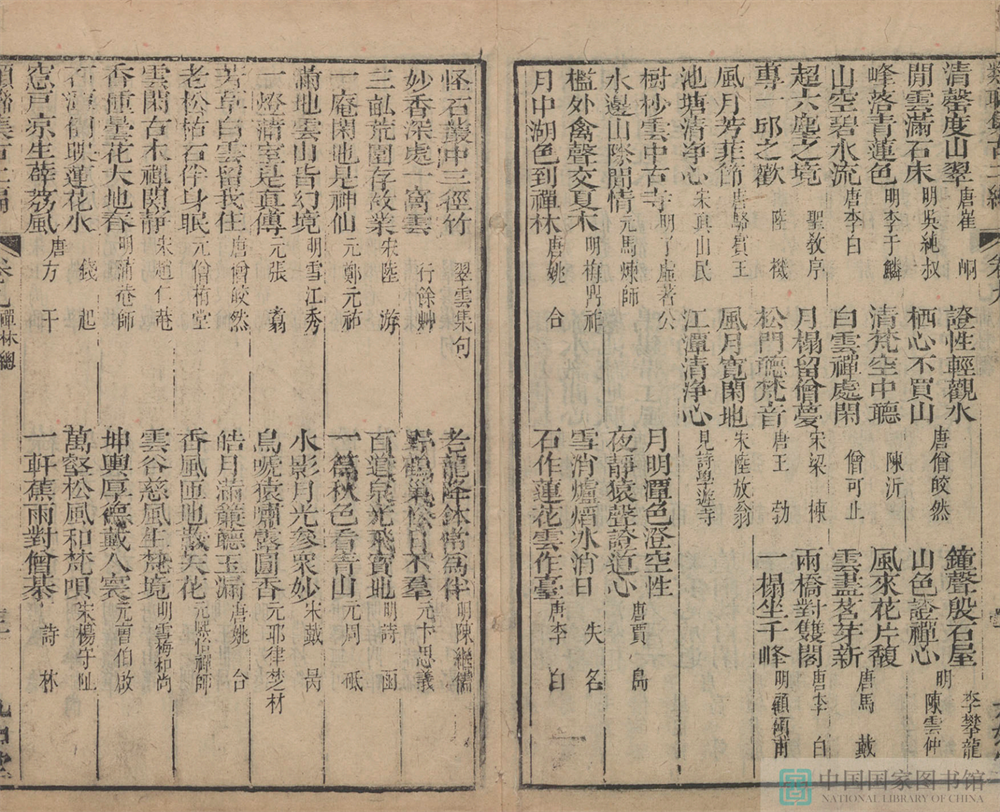 清罄度山翠 唐崔峒 證性輕觀水 鐘聲殷石屋 李攀龍
閒雲滿石床 明吳純叔 栖心不買山 唐僧皎然 山色證禪心 明陳雲仲
峰落青蓮色 明李于鱗 清梵空中聽 陳沂 風來花片馥
山空碧水流 唐李白 白雲禪處閒 僧可止 雲盡茗芽新 唐馬戴
超六塵之境 聖教序 月榻留僧夢 宋梁棟 兩橋對雙閣 唐李白
專一邱之歡 陸機 松門聽梵音 唐王勃 一榻坐千峰 明顧頫甫
風月芳菲節 唐駱賓王 風月寬閑地 宋陸放翁
池塘清淨心 宋真山民 江潭清淨心 見詩學遊寺
樹杪雲中古寺 明了虛著公 月明潭色澄空性
水邊山際閒情 元馬煉師 夜靜猿聲證道心 唐賈島
檻外禽聲交夏木 明梅鼎祚 雪消爐燼冰消日 失名
月中湖色到禪林 唐姚合 石作蓮花雲作臺 唐李白
怪石叢中三徑竹 翠雲集句 老龍降鉢常為伴 明陳繼儒
妙香深處一窩雲 行餘艸 野鶴巢松日不羣 元卞思義
三畝荒園存敎業 宋陸游 百道泉光飛寶地 明詩函
一庵閑地是神仙 元鄭元祐 一篇秋色看青山 元周砥
滿地雲山皆幻境 明雪江秀 水影月光參衆妙 宋戴昺
一燈清室是真傳 元張翥 鳥啼猿嘯露圓香 元耶律楚材
芳草白雲留我住 唐僧皎然 皓月滿簾聽玉漏 唐姚合
老松枯石伴身眠 元僧栯堂 香風匝地散天花 元熙怡禪師
雲閑古木禪関靜 宋道仁菴 雲谷慈風生梵境 明雪梅和尚
香偅曇花大地春 明蒲菴師 坤輿厚德載人寰 元曹伯啟
蓮花水 錢起 萬壑松風和梵唄 宋楊守阯
窓戸凉生薜荔風 唐方干 一軒蕉雨對僧棊 詩林
類聯集古二編 卷九 禪林總
中国国家图书馆
NATIONAL LIBRARY OF CHINA